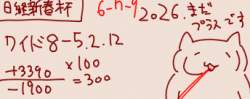 日経新春杯
6-n-9 2026.まだ
プラスです
ワイド8-5.2.12
+3390 ×100
-1900 =300